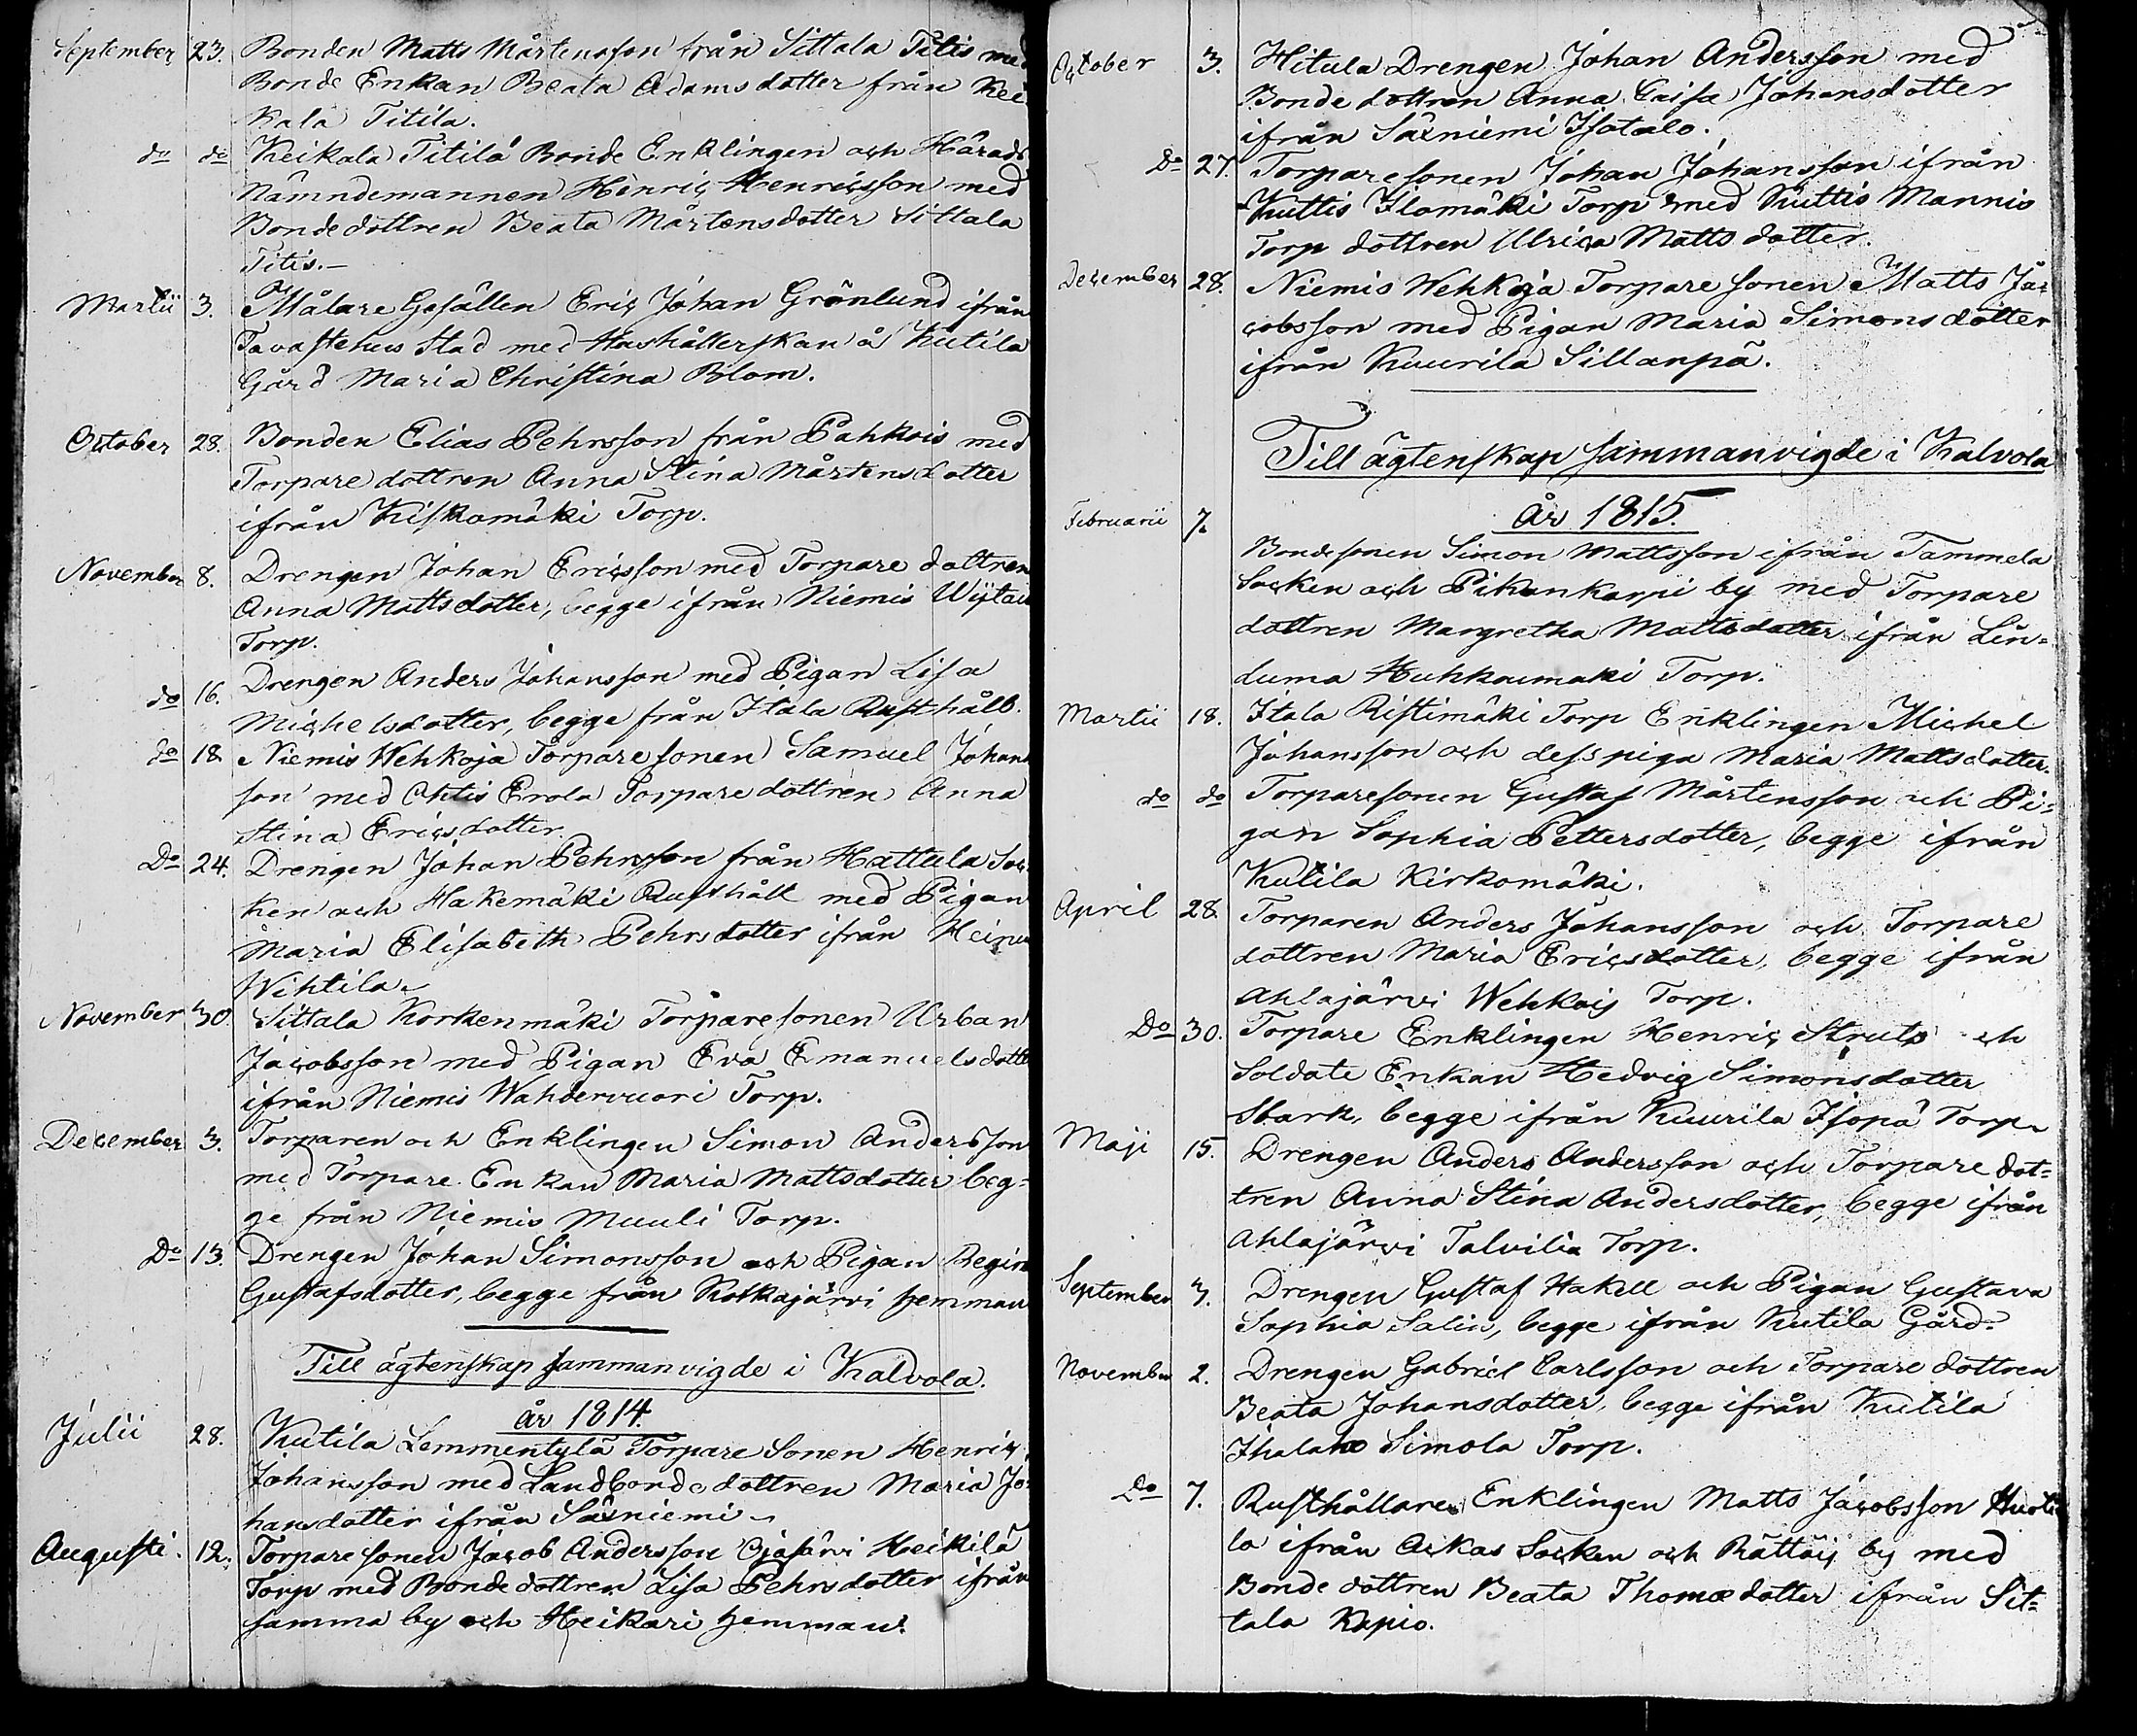 September 23. Bonden Matts Mårtensson från Sittala Titis med
Bonde Enkan Beata Adamsdotter från Kei
kala Titila.
do do Keikala Titilä Bonde Enklingen och Härads
Nämndemannen Henric Henricsson med
Bondedottren Beata Mårtensdotter Sittala
Titis.—
Martii 3. Målare Gesällen Eric Johan Grönlund ifrån
Tavastehus Stad med Hushållerskan å Kutila
Gård Maria Christina Blom.
October 28. Bonden Elias Pehrsson från Pahkois med
Torpare dottren Anna Stina Mårtensdotter
ifrån Kiskomäki Torp.
November 8. Drengen Johan Ericsson med Torpare dottren
Anna Mattsdotter, begge ifrån Niemis
Torp.
do 16. Drengen Anders Johansson med Pigan Lisa
Michelsdotter, begge från Itala Rusthåll.
do 18 Niemis Wehkoja Torparesonen Samuel Johans
son med Ahtis Erola Torpare dottren Anna
Stina Ericsdotter.
Do 24. Drengen Johan Pehrsson från Hattula Soc
ken och Hakemäki Rusthåll med Pigan
Maria Elisabeth Pehrsdotter ifrån Heinu
Wihtila.
November 30. Sittala Korkenmäki Torparesonen Urban
Jacobsson med Pigan Eva Emanuelsdotte
ifrån Niemis Wahdervuori Torp.
December 3. Torparen och Enklingen Simon Andersson
med Torpare Enkan Maria Mattsdotter beg=
ge från Niemis Muuli Torp.
Do 13. Drengen Johan Simonsson och Pigan Regina
Gustafsdotter, begge från Kotkajärvi hemman
Till ägtenskap sammanvigde i Kalvola.
år 1814.
Julii 28. Kutila Lemmentylä Torpare Sonen Henric
Johansson med Landbonde dottren Maria Jo=
hansdotter ifrån Säxniemi.
Augusti. 12. Torparesonen Jacob Andersson Ojajärvi Heikilä
Torp med Bondedottren Lisa Pehrsdotter ifrån
samma by och Heikari hemman.
October 3. Hitula Drengen Johan Andersson med
Bonde dottren Anna Caisa Johansdotter
ifrån Säxniemi Isotalo.
Do 27. Torparesonen Johan Johansson ifrån
Kuttis Ilomäki Torp med Kuttis Mannis
Torp dottren Ulrica Matts dotter.
December 28. Niemis Wehkoja Torpare sonen Matts Ja=
cobsson med Pigan Maria Simonsdotter
ifrån Kuurila Sillanpä.
Till ägtenskap sammanvigde i Kalvola
år 1815.
Februarii 7. Bondesonen Simon Mattsson ifrån Tammela
Socken och Pikonkorpi by med Torpare
dottren Margretha Mattsdotter ifrån Lin=
duma Huhkaimaki Torp.
Martii 18. Itala Ristimäki Torp Enklingen Michel
Johansson och dess piga Maria Mattsdotter.
do do Torparesonen Gustaf Mårtensson och Pi=
gan Sophia Pettersdotter, begge ifrån
Kutila Kirkomäki.
April 28. Torparen Anders Johansson och Torpare
dottren Maria Ericsdotter, begge ifrån
Ahlajärvi Wehkoij Torp.
Do 30. Torpare Enklingen Henric Struts och
Soldate Enkan Hedvig Simonsdotter
Stark, begge ifrån Kuurila Isopä Torp.
Maji 15. Drengen Anders Andersson och Torpare dot=
tren Anna Stina Andersdotter, begge ifrån
Ahlajärvi Talvilia Torp.
September 3. Drengen Gustaf Hakell och Pigan Gustava
Sophia Salin, begge ifrån Kutila Gård.
November 2. Drengen Gabriel Carlsson och Torpare dottren
Beata Johansdotter, begge ifrån Kutila
Simola Torp.
Do 7. Rusthållare Enklingen Matts Jacobsson
la ifrån Ackas Socken och Rättöij by med
Bonde dottren Beata Thomædotter ifrån Sit=
tala Kapio.